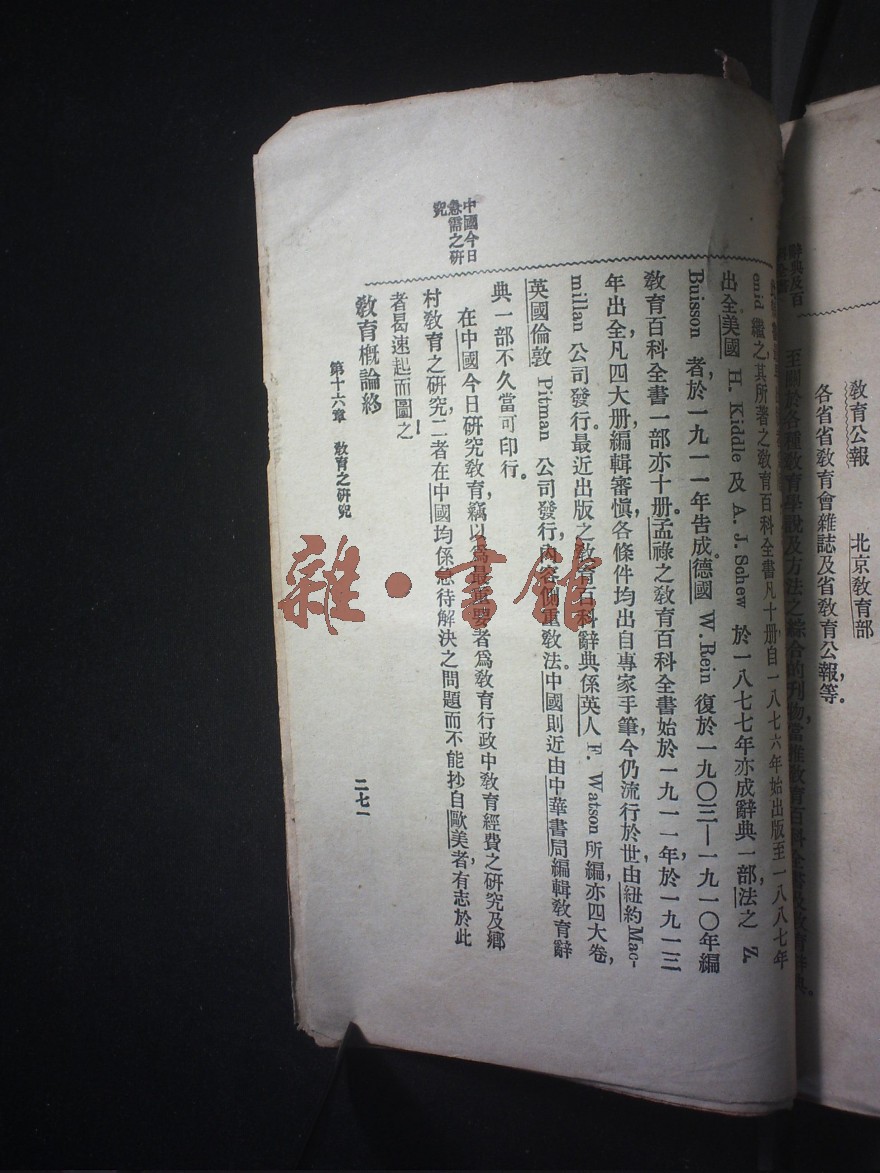 教育公報　北京教育部
各省省教育會雜誌及省教育公報等。
至關於各種教育學說及方法之綜合的刊物，當推教育百科全書及教育辭典。
繼之，其所著之教育百科全書凡十册，自一八七六年始出版至一八八七年
出全美國 H. Kiddle 及 A. J. Schew 於一八七七年亦成辭典一部，法之 Z.
Buisson 者，於一九一一年告成。德國 W. Rein 復於一九〇三—一九一〇年編
教育百科全書一部亦十册。孟祿之教育百科全書始於一九一一年，於一九一三
年出全，凡四大册，編輯審愼，各條件均出自專家手筆，今仍流行於世，由紐約 Mac-
millan 公司發行。最近出版之教育百科辭典係英人 F. Watson 所編，亦四大卷，
英國倫敦 Pitman 公司發行，內容側重教法。中國則近由中華書局編輯教育辭
典一部不久當可印行。
中國今日
急需之研
究
在中國今日研究教育，竊以爲最重要者爲教育行政中教育經費之研究及鄉
村教育之研究，二者在中國均係急待解決之問題而不能抄自歐美，者有志於此
者曷速起而圖之
教育概論終
第十六章　教育之研究
二七一
雜·書館